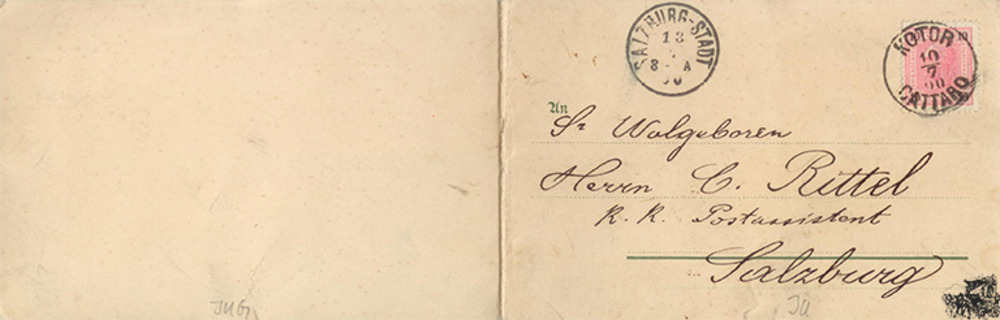 SALZBURG-STADT
13
8 A
KOTOR
10
7
00
CATTARO
10
An
Sr Wolgeboren
Herrn C. Rittel
K. K. Postassistent
Salzburg